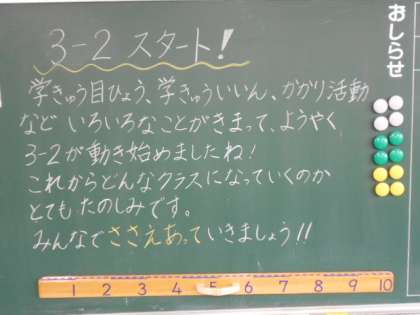 おしらせ
3-2 スタート!
学きゅう目ひょう、学きゅういいん、かかり活動
など いろいろなことがきまって、ようやく
3-2が動き始めましたね!
これからどんなクラスになっていくのか
とてもたのしみです。
みんなでささえあっていきましょう!!
1 2 3 4 5 6 7 8 9 10